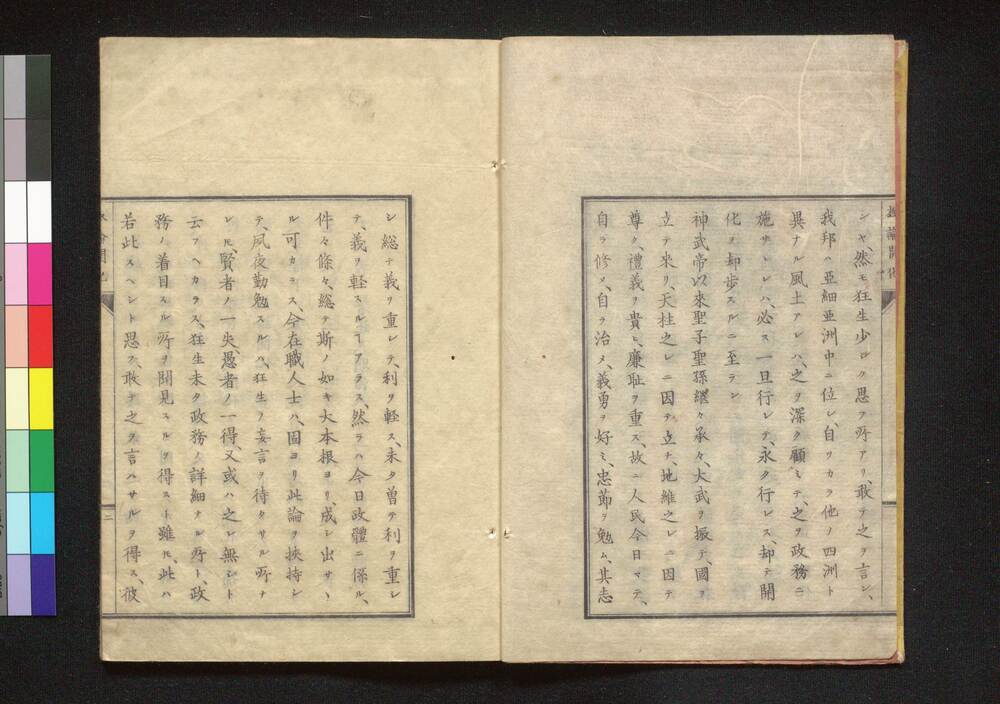 シヤ、然モ狂生少ロク思フ所アリ、敢テ之ヲ言ン、
我邦ハ亞細亜洲中ニ位シ、自ツカラ他ノ四洲ト
異ナル風土アレハ、之ヲ深ク顧ミテ、之ヲ政務ニ
施サヽレハ、必ス一旦行レテ、永ク行レス、却テ開
化ヲ却歩スルニ至ラン
神武帝以來聖子聖孫繼々承々、大武ヲ振テ、國ヲ
立テ來リ、天柱之レニ因テ立チ、地維之レニ因テ
尊ク、禮義ヲ貴ヒ、廉耻ヲ重ス、故ニ人民今日マテ、
自ラ修メ、自ラ治メ、義勇ヲ好ミ、忠節ヲ勉ム、其志
シ総テ義ヲ重シテ、利ヲ軽ス、未タ曽テ利ヲ重シ
テ、義ヲ軽スルヿアラス、然ラハ今日政體ニ係ル、
件々條々、総テ斯ノ如キ大本根ヨリ、成シ出サヽ
ル可カラス、今在職人士ハ、固ヨリ此論ヲ挾持シ
テ、夙夜勤勉スルハ、狂生ノ妄言ヲ待タサル所ナ
レ𪜈、賢者ノ一失、愚者ノ一得、又或ハ之レ無シト
云フヘカラス、狂生未タ政務ノ詳細ナル所ト、政
務ノ着目スル所ヲ聞見スルヲ得スト雖𪜈、此ハ
若此スヘシト思フ、敢テ之ヲ言ハサルヲ得ス、彼
二